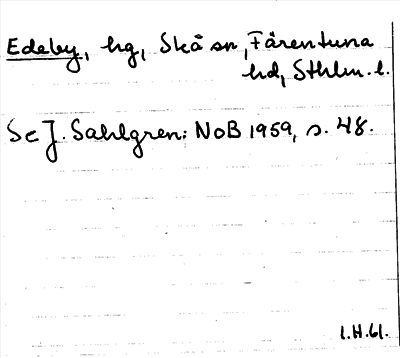 Edeby, hg, Skå sn, Färentuna
hd, Sthlm. l.
Se J. Sahlgren: NoB 1959, s. 48.
l.H.61.